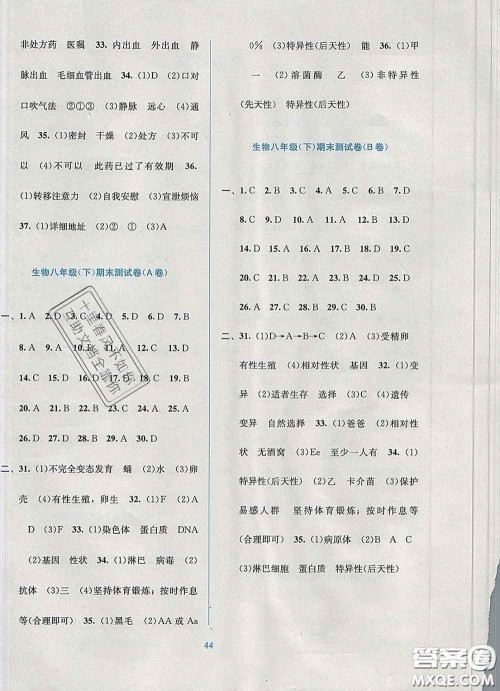 非处方药 医嘱 33. 内出血 外出血 静
脉出血 毛细血管出血 34. (1)D (2)口对
口吹气法 ②①③ (3)静脉 远心 (4)通
风 35. (1)密封 干燥 (2)处方 (3)不可
以 (4)不可以 此药已过了有效期 36.
(1)转移注意力 (2)自我安慰 (3)宣泄烦恼
37. (1)详细地址 (2)② ① (3)A
生物八年级(下)期末测试卷(A卷)
一、1. A 2. D 3. C 4. D 5. A 6. C 7. D
8. A 9. D 11. A 12. C 13. D
14. C 15. D 17. A 18. D 19. D
20. D 21. C 23. B 24. B 25. B
26. C 27. B 28. C 29. A 30. D
二、31. (1)不完全变态发育 蛹 (2)水 (3)卵
壳 (4)有性生殖,卵生 32. (1)B (2)A
D (3)F 33. (1)染色体 蛋白质 DNA
(2)基因 性状 34. (1)淋巴 病毒 (2)
抗体 (3)三 (4)坚持体育锻炼;按时作息
等(合理即可) 35. (1)黑毛 (2)AA或Aa
0% (3)特异性(后天性) 能 36. (1)甲
一 (2)溶菌酶 乙 (3)非特异性
(先天性) 特异性(后天性)
生物八年级(下)期末测试卷(B卷)
一、1. C 2. C 3. A 4. B 5. A 6. B 7. D
8. D 9. A 10. D 11. C 12. A 13. B
14. D 15. A 16. A 17. D 18. C 19. D
20. D 21. D 22. C 23. D 24. B 25. D
26. C 27. D 28. D 29. C 30. B
二、31. (1)D→A→C (2)F 32. (1)受精卵
有性生殖 (2)相对性状 基因 33. (1)变
异 (2)适者生存 选择 (3)C (4)遗传
变异 自然选择 34. (1)相对性状
无酒窝 (3)Ee 至少一人有 35. (1)A
特异性(后天性) (2)乙 卡介苗 (3)保护
易感人群 坚持体育锻炼;按时作息等
(合理即可) 36. (1)病原体 (2)B A C
(3)淋巴细胞 蛋白质 特异性(后天性)
十里春风不如你
互助文档全靠你
44
答案圈
MXQE.COM